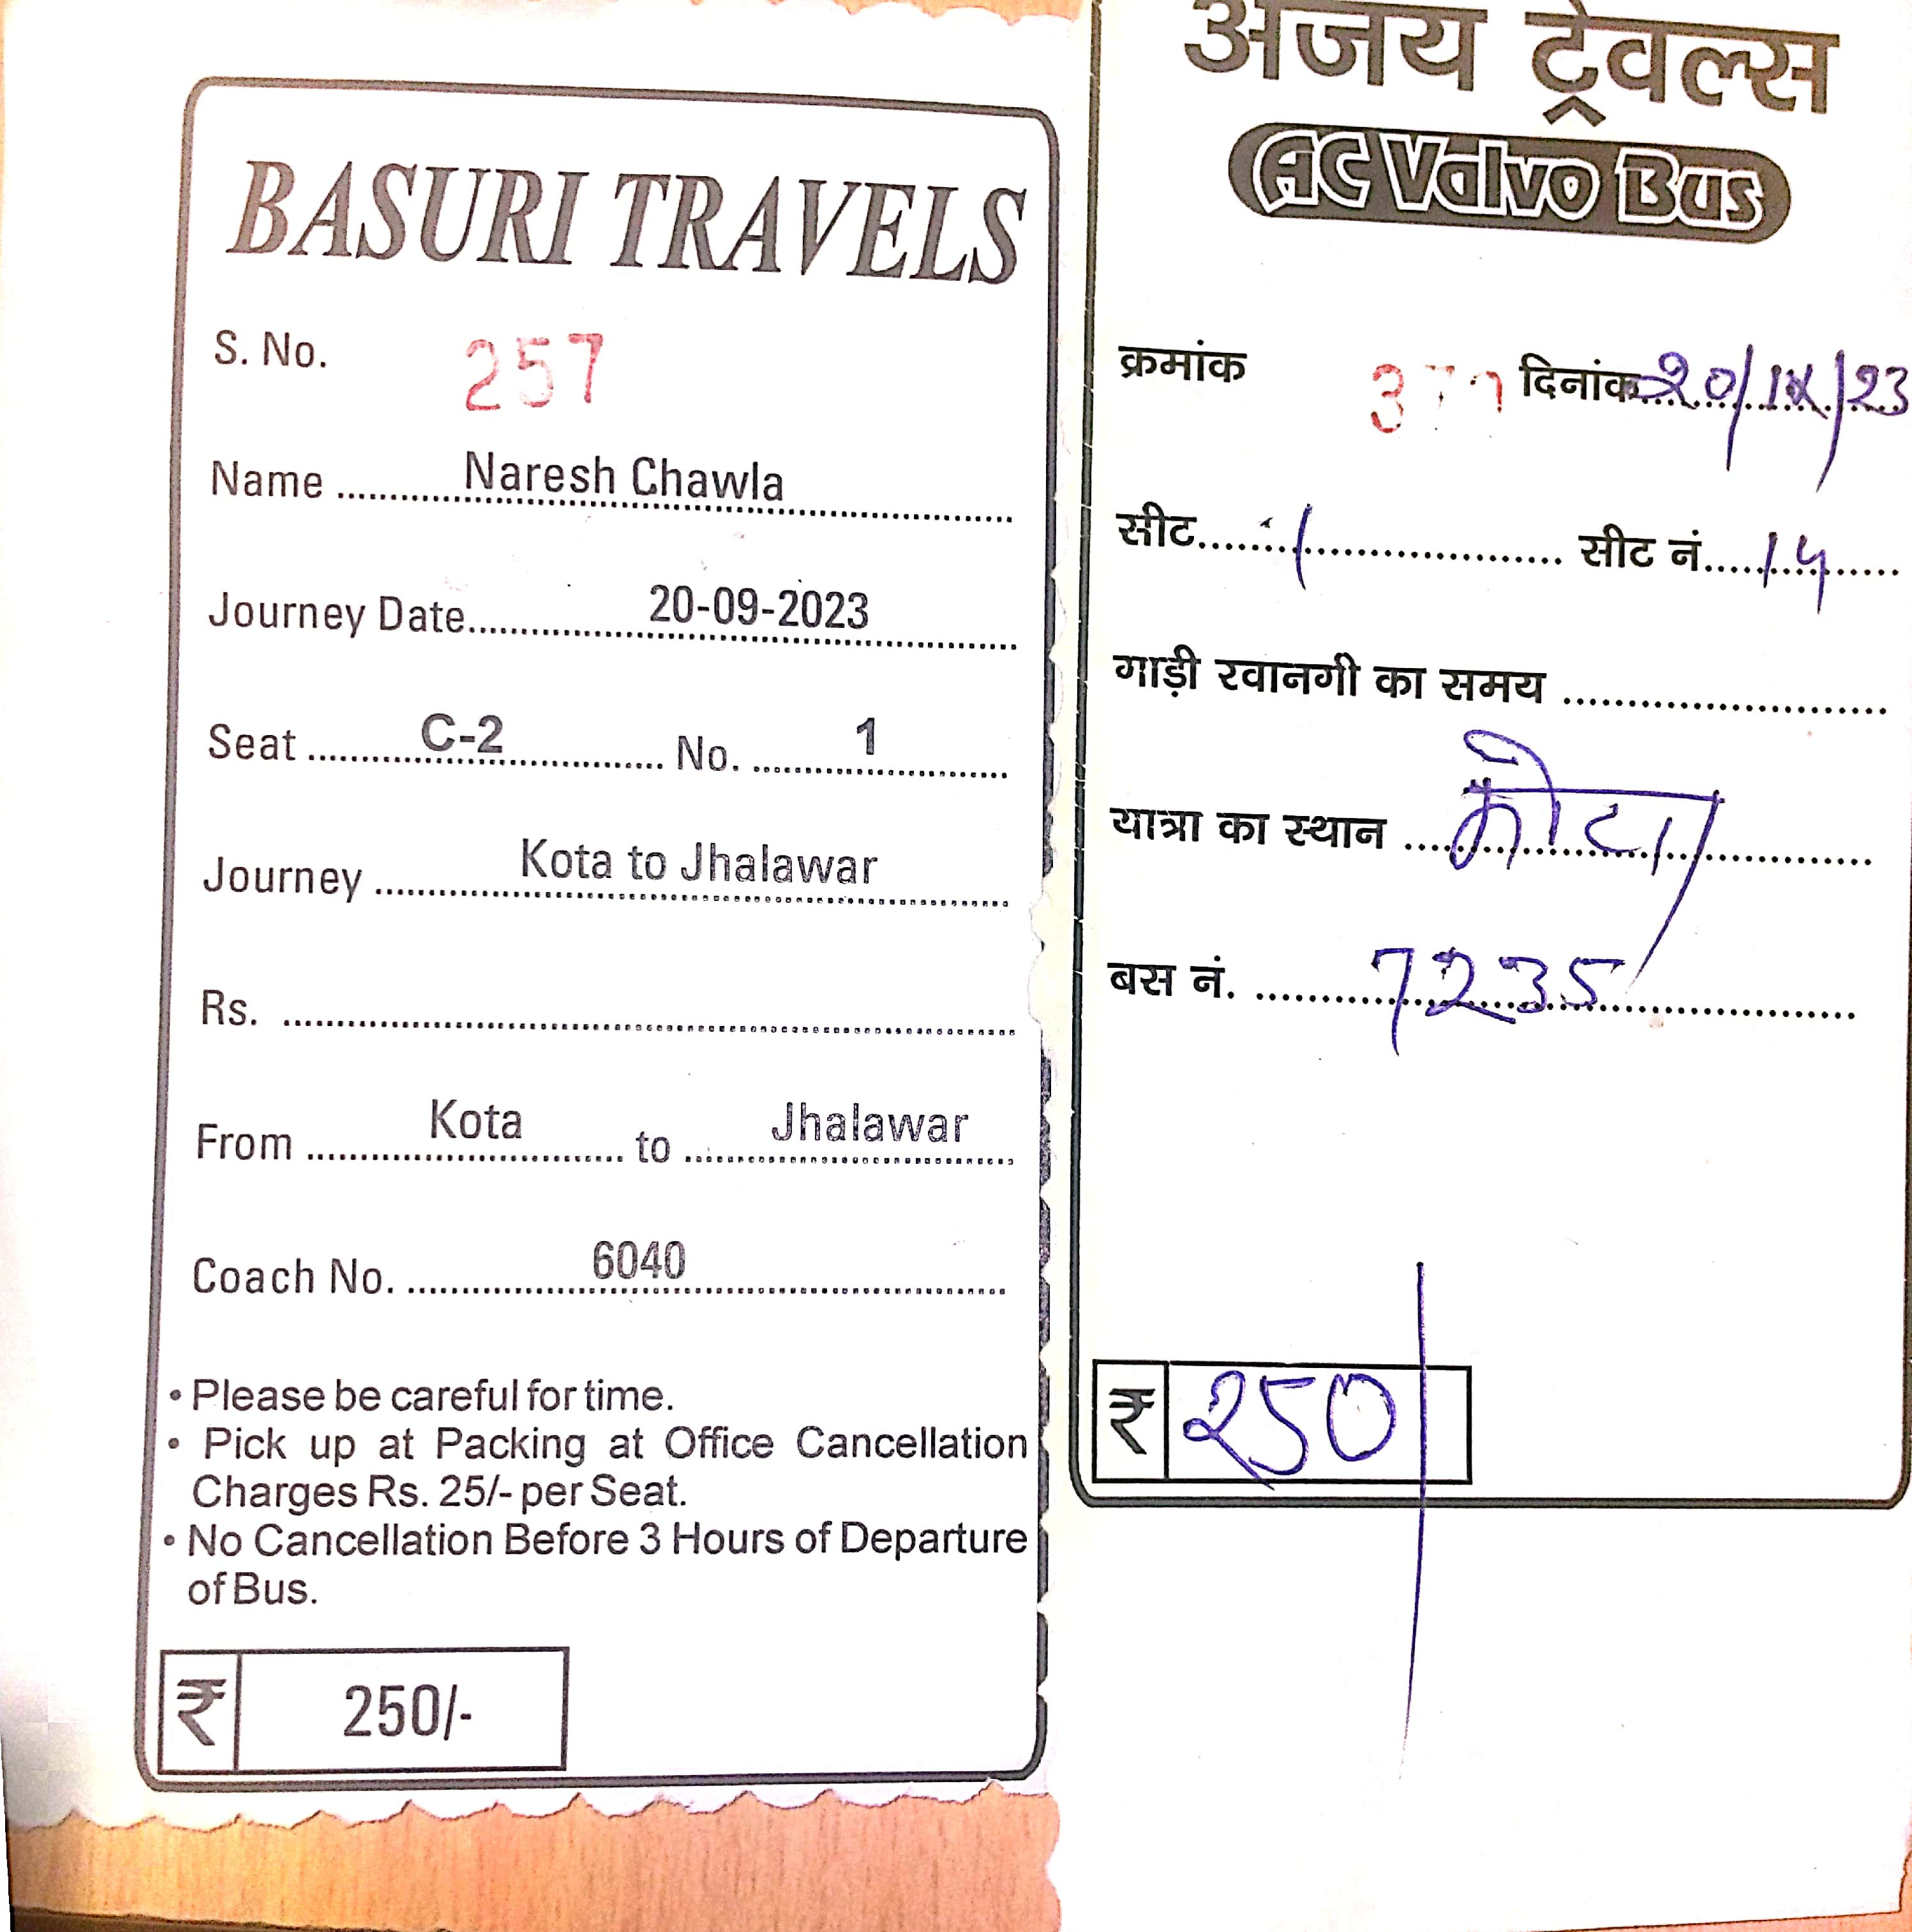 BASURI TRAVELS
S. No. 257
Name Naresh Chawla
Journey Date 20-09-2023
Seat C-2 No. 1
Journey Kota to Jhalawar
Rs.
From Kota to Jhalawar
Coach No. 6040
• Please be careful for time.
• Pick up at Packing at Office Cancellation
Charges Rs. 25/- per Seat.
• No Cancellation Before 3 Hours of Departure
of Bus.
₹ 250/-
अजय ट्रेवल्स
AC Valvo Bus
क्रमांक दिनांक
सीट 1 सीट नं.
गाड़ी रवानगी का समय
यात्रा का स्थान कोटा
बस नं. 7235
₹ 250